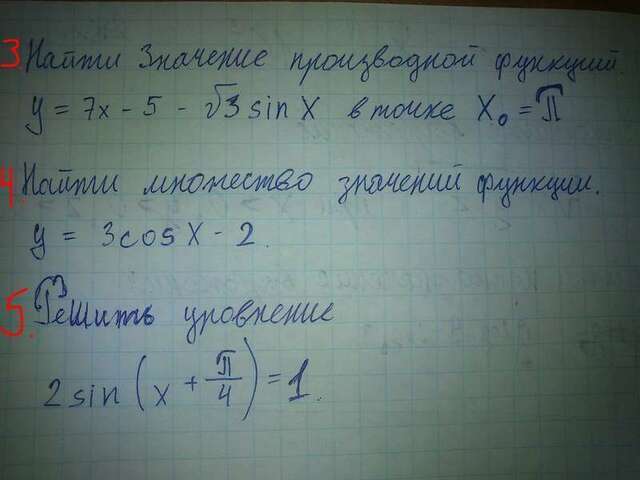 3 Найти Значение производной функций.
y = 7x - 5 - √3 sin x в точке x₀ = π
4. Найти множество значений функции.
y = 3cosx - 2.
5. Решить уровнение
2 sin (x + π/4) = 1.